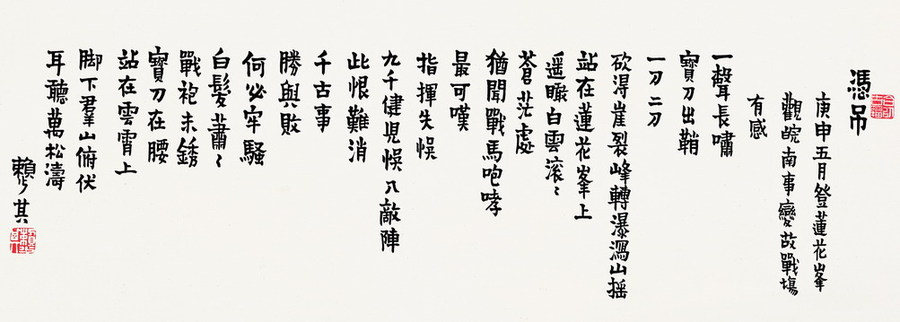 憑吊
庚申五月登蓮花峯
觀皖南事變故戰場
有感
一聲長嘯
寳刀出鞘
一刀二刀
砍得崖裂峰轉瀑瀉山摇
站在蓮花峯上
遥瞰白雲滚〻
蒼茫處
猶聞戰馬咆哮
最可嘆
指揮失悮
九千健兒悮入敵陣
此恨難消
千古事
勝與敗
何必牢騷
白髮蕭〻
戰袍未銹
寳刀在腰
站在雲霄上
脚下羣山俯伏
耳聽萬松濤
賴少其